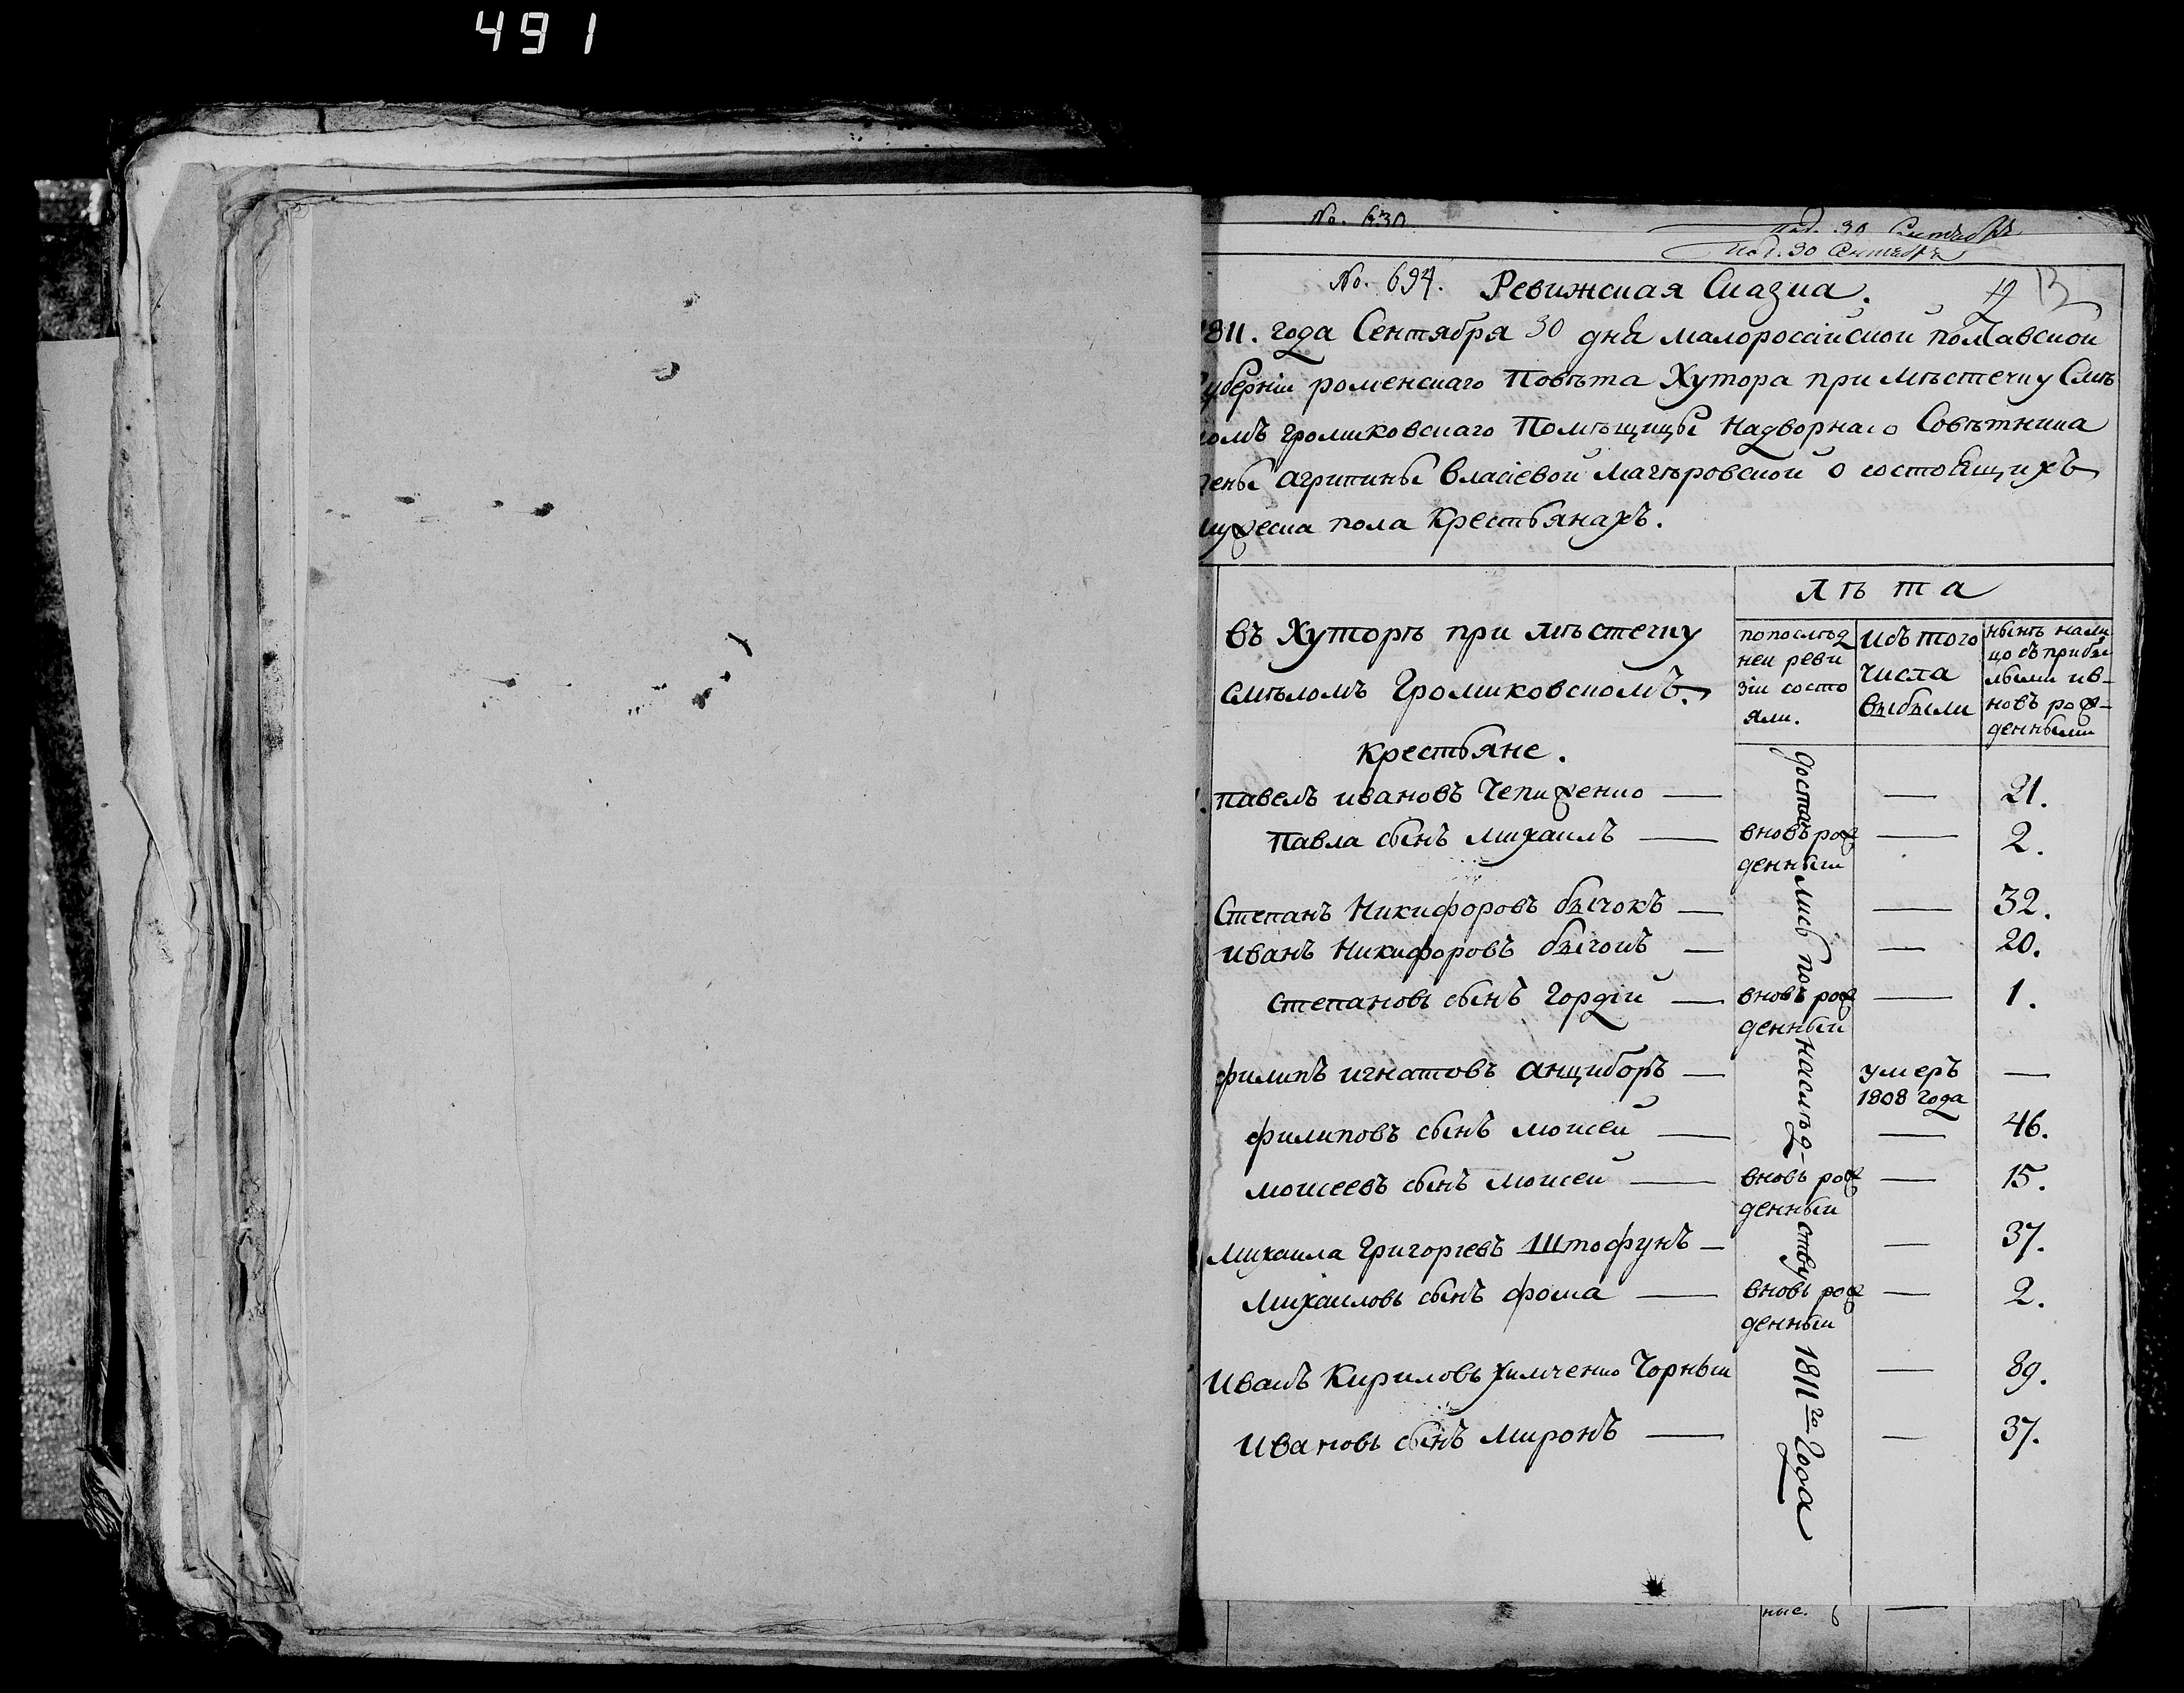 491
No. 630.
Под. 30 Сентября
Под. 30 Сентября
No. 694. Ревижская Сказка. 12 13
1811. года Сентября 30 дня малороссійской полтавской
губерніи роменскаго Повѣта Хутора при мѣстечку Смѣ
ломъ громиковскаго Помѣщицы Надворнаго Совѣтника
жены агрипины власіевой мачѣровской о состоящихъ
мужеска пола крестьянахъ.
въ Хуторѣ при мѣстечку
смѣломъ Громиковскомъ.
Крестьяне.
лѣта
попослѣд
ней реви
зіи состо
яли.
изъ того
числа
выбыли
нынѣ нали
цо съ прибы
лыми ив-
новъ рож-
денными
достались по наслѣд-ству 1811го Года
павелъ ивановъ Чепиженко — — 21.
Павла сынъ михаилъ — вновь рож — 2.
денный
Степанъ Никифоровъ бычокъ — — 32.
иванъ Никифоровъ бычокъ — — 20.
степановъ сынъ Гордій — вновь рож — 1.
денный
филипъ игнатовъ анцыборъ — умеръ —
1808 года
филиповъ сынъ моисей — — 46.
моисеевъ сынъ моисей — вновь рож — 15.
денный
михаила григоріевъ Штофунъ — — 37.
михаиловъ сынъ фома — вновь рож — 2.
денный
Иванъ Кириловъ химченко Чорный — 89.
Ивановъ сынъ миронъ — — 37.
ные. —